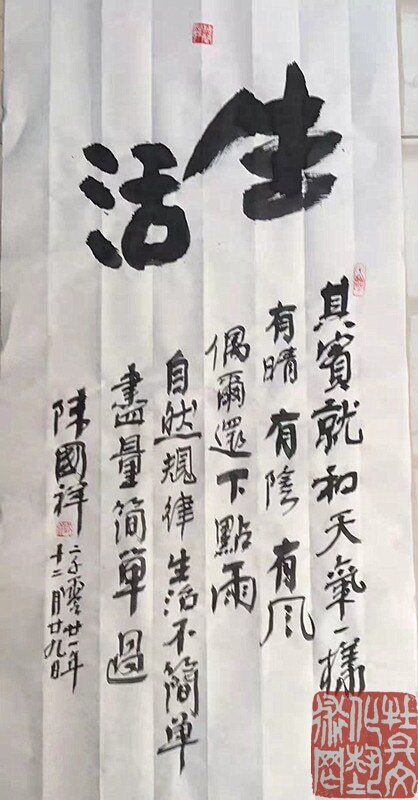 生活
其實就和天氣一樣
有晴有陰有风
偶爾還下點雨
自然規律生活不簡单
盡量简單過
陳國祥
二千零廿一年
十二月廿九日